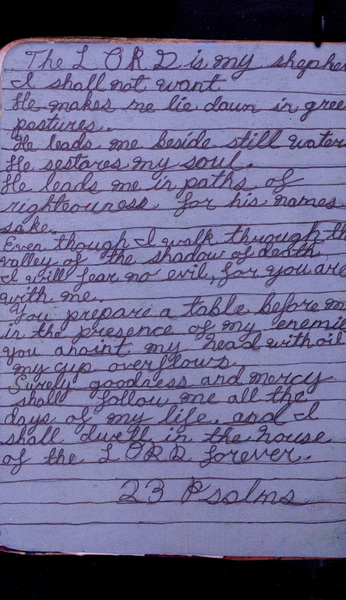 The L O R D is my shepher
I shall not want
He makes me lie down in gree
pastures..
He leads me beside still water
He restores my soul.
He leads me in paths of
righteouness for his names
sake.
Even though I walk through th
valley of the shadow of death
I will fear no evil, for you are
with me.
You prepare a table before m
in the presence of my enemie
you anoint my head with oil
my cup overflows.
Surely goodness and mercy
shall follow me all the
days of my life, and I
shall dwell in the house
of the L O R D forever.
23 Psalms